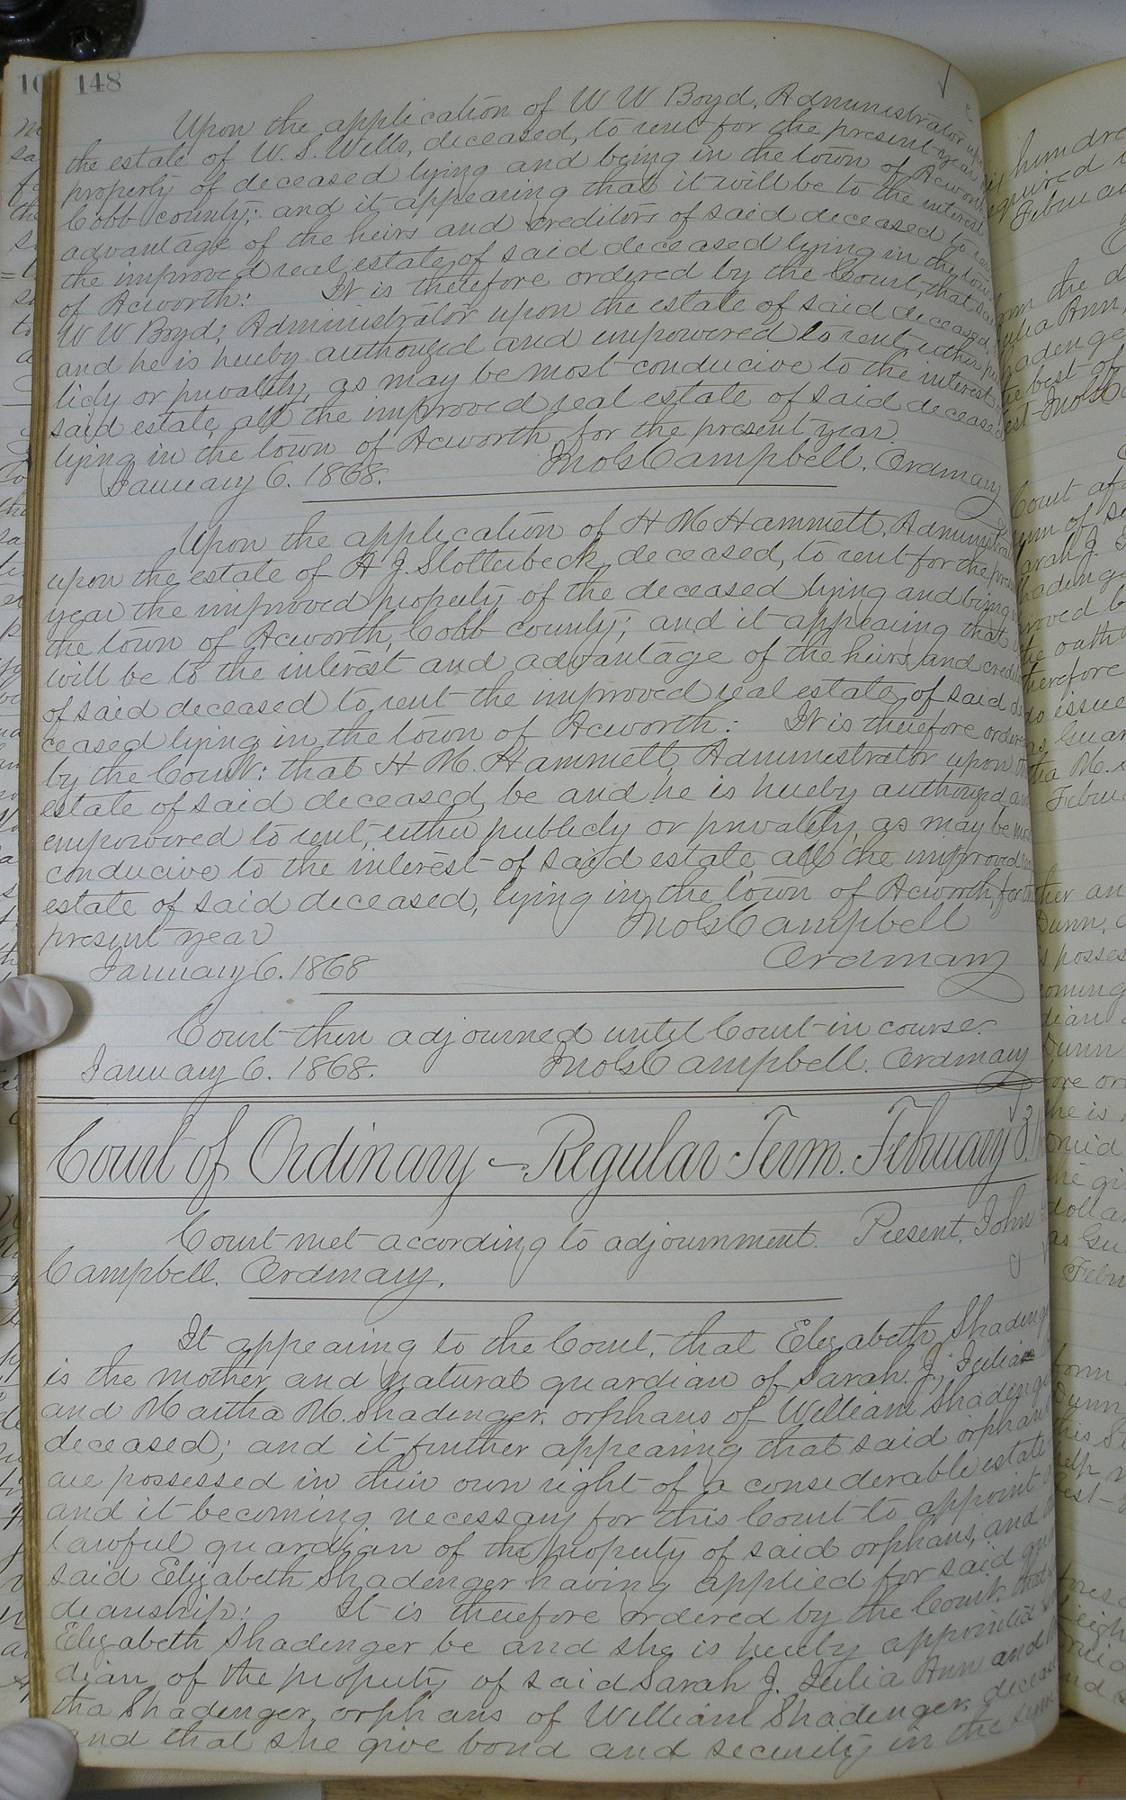 148
Upon the application of W W Boyd, Administrator upon
the estate of W. S. Wells, deceased, to rent for the present year
property of deceased lying and being in the town of Acworth
Cobb county; and it appearing that it will be to the interest
advantage of the heirs and creditors of said deceased to rent
the improved real estate of said deceased lying in the town
of Acworth: It is therefore ordered by the Court, that said
W W Boyd, Administrator upon the estate of said deceased,
and he is hereby authorized and empowered to rent either pub
licly or privately, as may be most conducive to the interest
said estate, all the improved real estate of said deceased
lying in the town of Acworth for the present year.
January 6. 1868. Jno G Campbell, Ordinary
Upon the application of H M Hammett, Administrat
upon the estate of A J. Slotterbeck, deceased, to rent for the present
year the improved property of the deceased lying and being
the town of Acworth, Cobb county; and it appearing that
will be to the interest and advantage of the heirs and credit
of said deceased to rent the improved real estate of said de
ceased lying in the town of Acworth: It is therefore ordered
by the Court: that H M. Hammett, Administrator upon the
estate of said deceased, be and he is hereby authorized and
empowered to rent, either publicly or privately, as may be most
conducive to the interest of said estate, all the improved
estate of said deceased, lying in the town of Acworth, for the
present year
Jno G Campbell
January 6. 1868 Ordinary
Court then adjourned until Court in course.
January 6. 1868. Jno G Campbell, Ordinary
Court of Ordinary - Regular Term. February 3.
Court met according to adjournment. Present, John
Campbell. Ordinary.
It appearing to the Court, that Elizabeth Shadinger
is the mother and natural guardian of Sarah J., Julia
and Martha M. Shadinger, orphans of William Shadinger
deceased; and it further appearing that said orphans
are possessed in their own right of a considerable estate
and it becoming necessary for this Court to appoint
lawful guardian of the property of said orphans, and
said Elizabeth Shadinger having applied for said guar
dianship: It is therefore ordered by the Court, that
Elizabeth Shadinger be and she is hereby appointed
dian of the property of said Sarah J. Julia Ann and
tha Shadinger, orphans of William Shadinger, deceased
and that she give bond and security in the sum